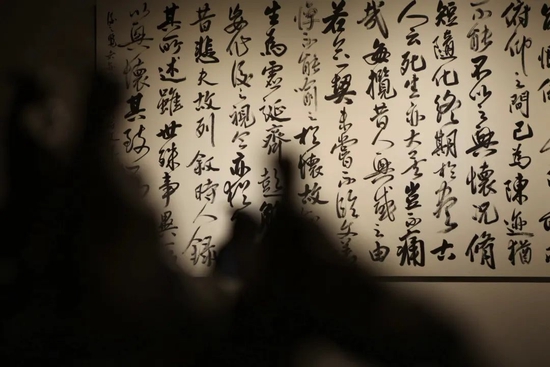 俯仰之間已為陳迹猶
不能不以之興懷況脩
短隨化終期於盡古
人云死生亦大矣豈不痛
哉每攬昔人興感之由
若合一契未嘗不臨文嗟
悼不能喻之於懷故
生為虛誕齊彭
妄作後之視今亦猶
昔悲夫故列敘時人錄
其所述雖世殊事異
以興懷其致